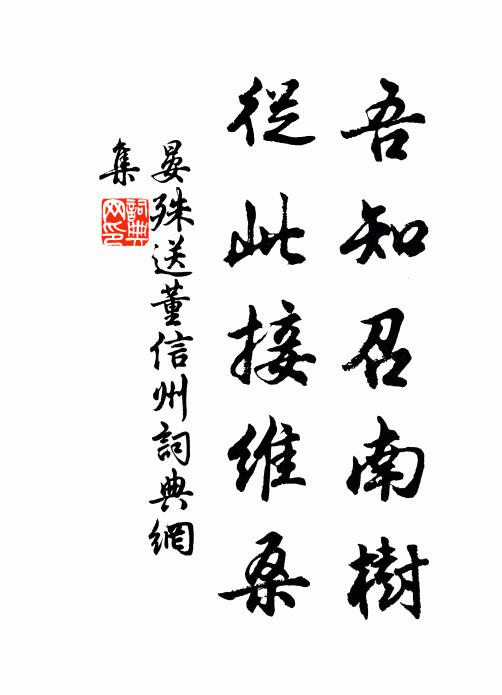 吾知召南樹
從此接維桑
晏殊送董信州詞典網
集
詞典網印